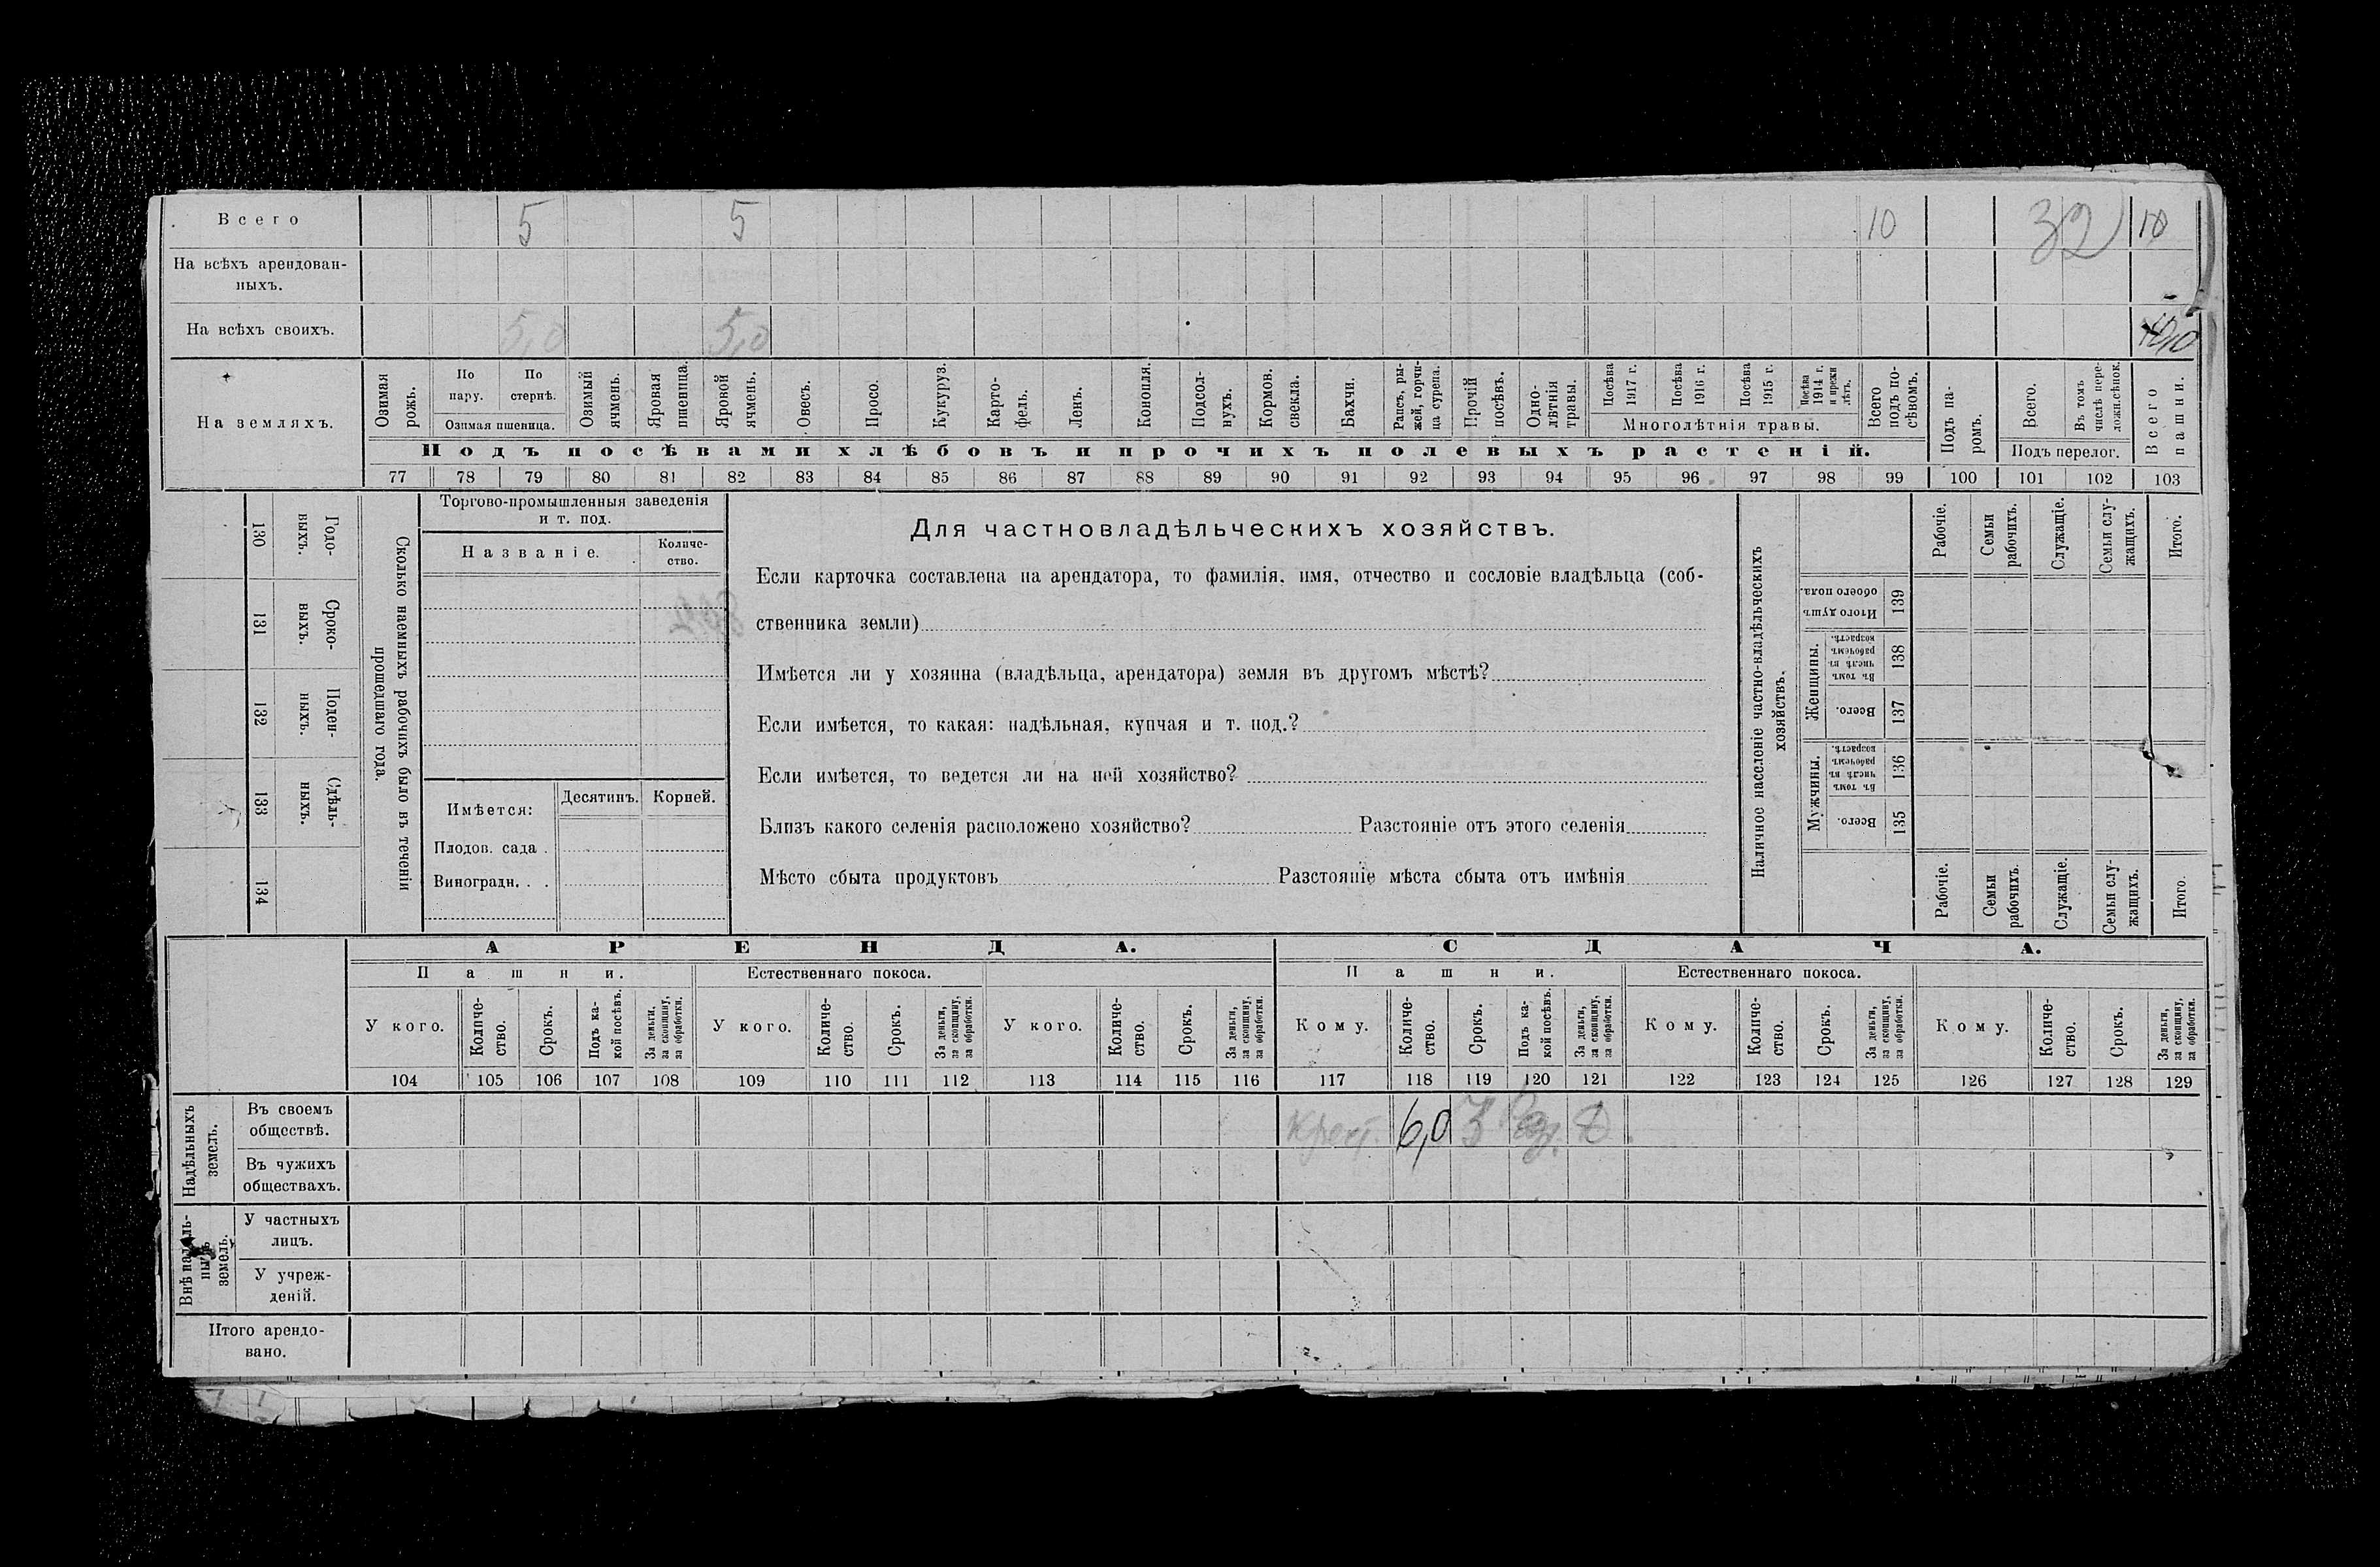 Всего 5 5 10 32 10
На всѣхъ арендован-
ныхъ.
На всѣхъ своихъ. 5,0 5,0
На земляхъ.
Озимая рожь.
По пару.
По стернѣ.
Озимая пшеница.
Озимый ячмень.
Яровая пшеница.
Яровой ячмень.
Овесъ.
Просо.
Кукуруз.
Карто-
фель.
Ленъ.
Конопля.
Подсол-
нухъ.
Кормов.
свекла.
Бахчи.
Рапсъ, ры-
жей, горчи-
ца сурепа.
Прочій
посѣвъ.
Одно-
лѣтнія
травы.
Посѣва
1917 г.
Посѣва
1916 г.
Посѣва
1915 г.
Посѣва
1914 г.
и прежн
лѣтъ.
Многолѣтнія травы.
Всего
подъ по-
сѣвомъ.
Подъ па-
ромъ.
Всего.
Въ томъ
числѣ пере-
ложн.сѣнок.
Подъ перелог.
Всего
пашни.
Подъ посѣвами хлѣбовъ и прочихъ полевыхъ растеній.
77 78 79 80 81 82 83 84 85 86 87 88 89 90 91 92 93 94 95 96 97 98 99 100 101 102 103
Сколько наемныхъ рабочихъ было въ теченіи
прошедшаго года.
Годо-
выхъ.
130
Сроко-
выхъ.
131
Поден-
ныхъ.
132
Сдѣль-
ныхъ.
133
134
Торгово-промышленныя заведенія
и т. под.
Названіе.
Количе-
ство.
Имѣется:
Десятинъ. Корней.
Плодов. сада .
Виноградн. . .
Для частновладѣльческихъ хозяйствъ.
Если карточка составлена на арендатора, то фамилія, имя, отчество и сословіе владѣльца (соб-
ственника земли)
Имѣется ли у хозяина (владѣльца, арендатора) земля въ другомъ мѣстѣ?
Если имѣется, то какая: надѣльная, купчая и т. под.?
Если имѣется, то ведется ли на ней хозяйство?
Близъ какого селенія расположено хозяйство? Разстояніе отъ этого селенія
Мѣсто сбыта продуктовъ Разстояніе мѣста сбыта отъ имѣнія
Наличное населеніе частно-владѣльческихъ
хозяйствъ.
Рабочіе.
Семьи
рабочихъ.
Служащіе.
Семьи слу-
жащихъ.
Итого.
Итого душъ
обоего пола.
139
Женщины.
Въ томъ
числѣ въ
рабочемъ
возрастѣ.
138
Всего.
137
Мужчины.
Въ томъ
числѣ въ
рабочемъ
возрастѣ.
136
Всего.
135
Рабочіе.
Семьи
рабочихъ.
Служащіе.
Семьи слу-
жащихъ.
Итого.
АРЕНДА. СДАЧА.
Пашни. Естественнаго покоса. Пашни. Естественнаго покоса.
У кого.
Количе-
ство.
Срокъ.
Подъ ка-
кой посѣвъ.
За деньги,
за скопщину,
за обработки.
У кого.
Количе-
ство.
Срокъ.
За деньги,
за скопщину,
за обработки.
У кого.
Количе-
ство.
Срокъ.
За деньги,
за скопщину,
за обработки.
Кому.
Количе-
ство.
Срокъ.
Подъ ка-
кой посѣвъ.
За деньги,
за скопщину,
за обработки.
Кому.
Количе-
ство.
Срокъ.
За деньги,
за скопщину,
за обработки.
Кому.
Количе-
ство.
Срокъ.
За деньги,
за скопщину,
за обработки.
104 105 106 107 108 109 110 111 112 113 114 115 116 117 118 119 120 121 122 123 124 125 126 127 128 129
Надѣльныхъ
земель.
Въ своемъ
обществѣ.
Крест. 6,0 3
Въ чужихъ
обществахъ.
Внѣ надѣль-
ныхъ
земель.
У частныхъ
лицъ.
У учреж-
деній.
Итого арендо-
вано.